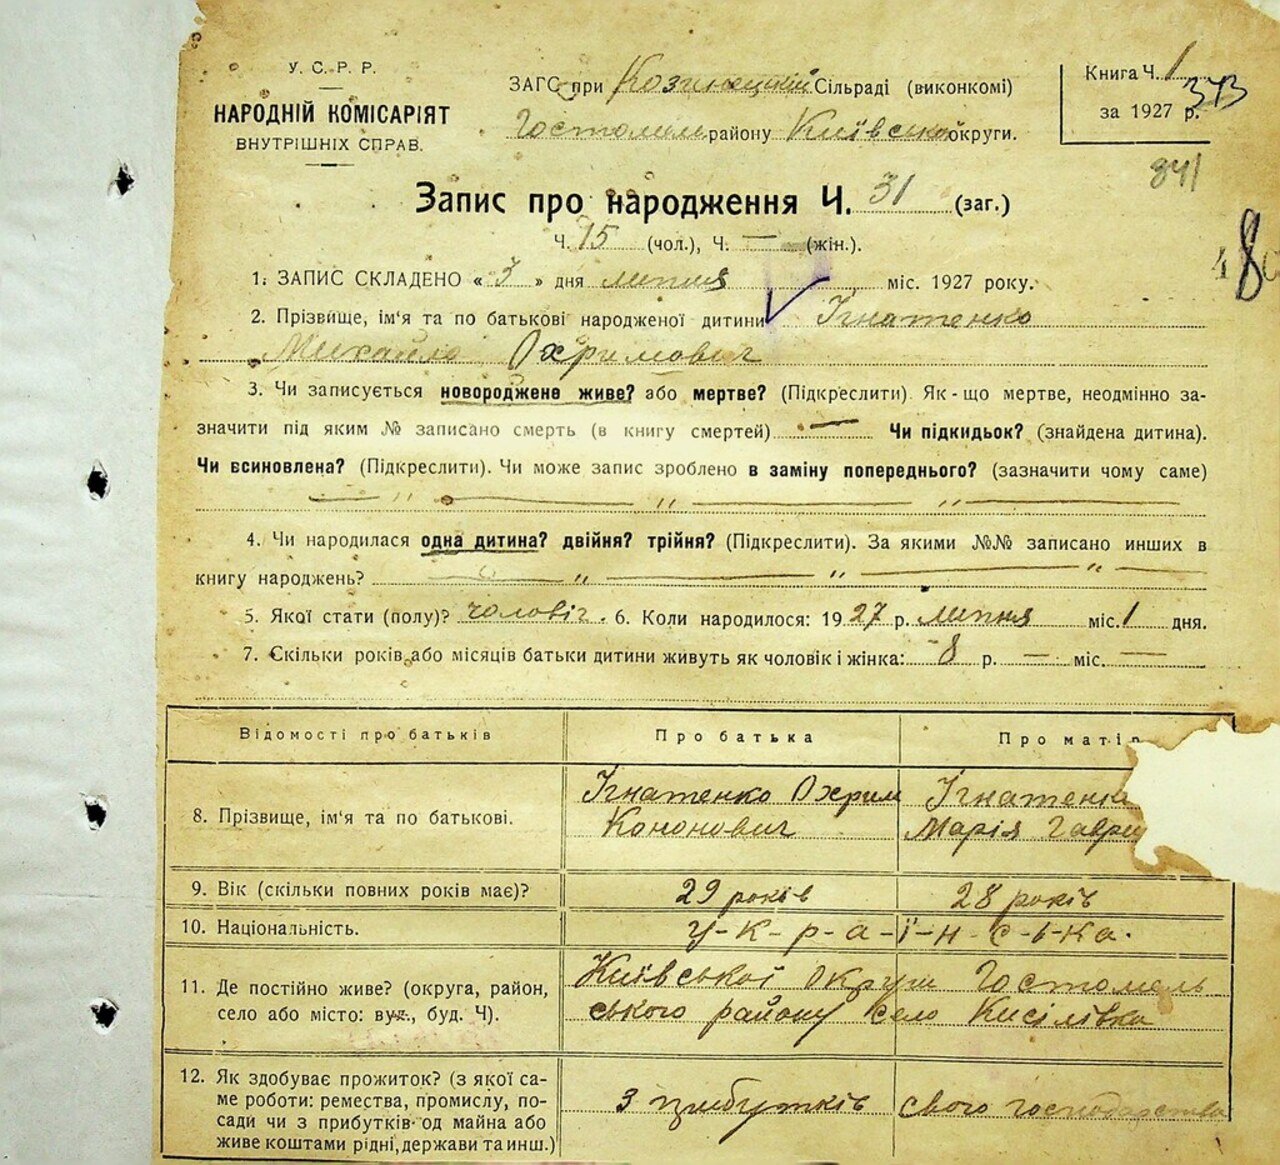 У. С. Р. Р.
НАРОДНІЙ КОМІСАРІЯТ
ВНУТРІШНІХ СПРАВ.
ЗАГС при Козинецкій Сільраді (виконкомі)
Гостомел району Київської округи.
Книга Ч. 1
за 1927 р.
343
341
Запис про народження Ч. 31 (заг.)
Ч. 15 (чол.), Ч. — (жін.).
1. ЗАПИС СКЛАДЕНО « 3 » дня липня міс. 1927 року.
2. Прізвище, ім'я та по батькові народженої дитини Ігнатенко
Михайло Охримович
3. Чи записується новороджене живе? або мертве? (Підкреслити). Як-що мертве, неодмінно за-
значити під яким № записано смерть (в книгу смертей) — Чи підкидьок? (знайдена дитина).
Чи всиновлена? (Підкреслити). Чи може запис зроблено в заміну попереднього? (зазначити чому саме)
— „ — „ — „ —
4. Чи народилася одна дитина? двійня? трійня? (Підкреслити). За якими №№ записано инших в
книгу народжень? — „ — „ — „ —
5. Якої стати (полу)? чоловіч. 6. Коли народилося: 1927 р. липня міс. 1 дня.
7. Скільки років або місяців батьки дитини живуть як чоловік і жінка: 8 р. — міс. —
Відомості про батьків Про батька Про матір
8. Прізвище, ім'я та по батькові. Ігнатенко Охрим Ігнатенк
Кононович Марія Гаври
9. Вік (скільки повних років має)? 29 років 28 років
10. Національність. у-к-р-а-ї-н-с-ь-ка.
11. Де постійно живе? (округа, район, Київської округи Гостомель
село або місто: вул., буд. Ч). ського району село Кисілівка
12. Як здобуває прожиток? (з якої са-
ме роботи: ремества, промислу, по- З прибутків свого господарства
сади чи з прибутків од майна або
живе коштами рідні, держави та инш.)